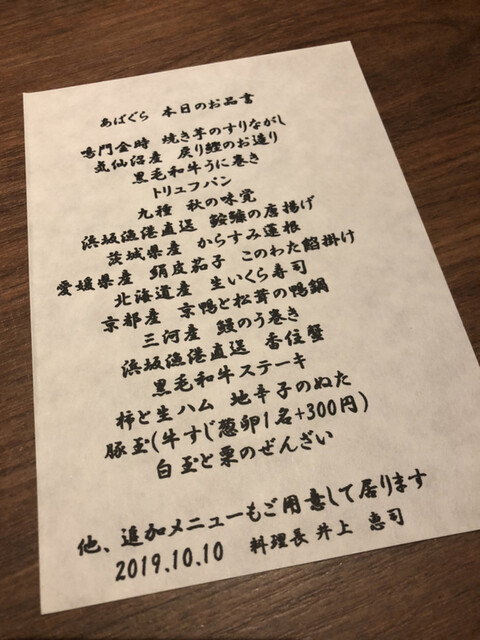 あばぐら 本日のお品書
鳴門金時 焼き芋のすりながし
気仙沼産 戻り鰹のお造り
黒毛和牛うに巻き
トリュフパン
九種 秋の味覚
浜坂漁港直送 鮟鱇の唐揚げ
茨城県産 からすみ蓮根
愛媛県産 絹皮茄子 このわた餡掛け
北海道産 生いくら寿司
京都産 京鴨と松茸の鴨鍋
三河産 鰻のう巻き
浜坂漁港直送 香住蟹
黒毛和牛ステーキ
柿と生ハム 地辛子のぬた
豚玉(牛すじ葱卵1名+300円)
白玉と栗のぜんざい
他、追加メニューもご用意して居ります
2019.10.10 料理長 井上 恵司